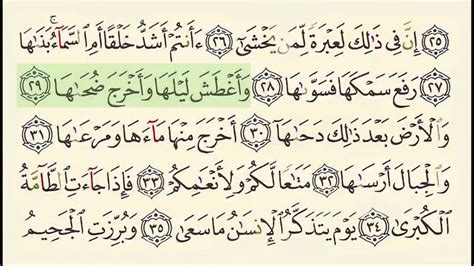 ٢٥ إِنَّ فِي ذَٰلِكَ لَعِبْرَةً لِّمَن يَخْشَىٰٓ ٢٦ ءَأَنتُمْ أَشَدُّ خَلْقًا أَمِ ٱلسَّمَآءُ ۚ بَنَىٰهَا
٢٧ رَفَعَ سَمْكَهَا فَسَوَّىٰهَا ٢٨ وَأَغْطَشَ لَيْلَهَا وَأَخْرَجَ ضُحَىٰهَا ٢٩
وَٱلْأَرْضَ بَعْدَ ذَٰلِكَ دَحَىٰهَآ ٣٠ أَخْرَجَ مِنْهَا مَآءَهَا وَمَرْعَىٰهَا ٣١
وَٱلْجِبَالَ أَرْسَىٰهَا ٣٢ مَتَٰعًا لَّكُمْ وَلِأَنْعَٰمِكُمْ ٣٣ فَإِذَا جَآءَتِ ٱلطَّآمَّةُ
ٱلْكُبْرَىٰ ٣٤ يَوْمَ يَتَذَكَّرُ ٱلْإِنسَٰنُ مَا سَعَىٰ ٣٥ وَبُرِّزَتِ ٱلْجَحِيمُ